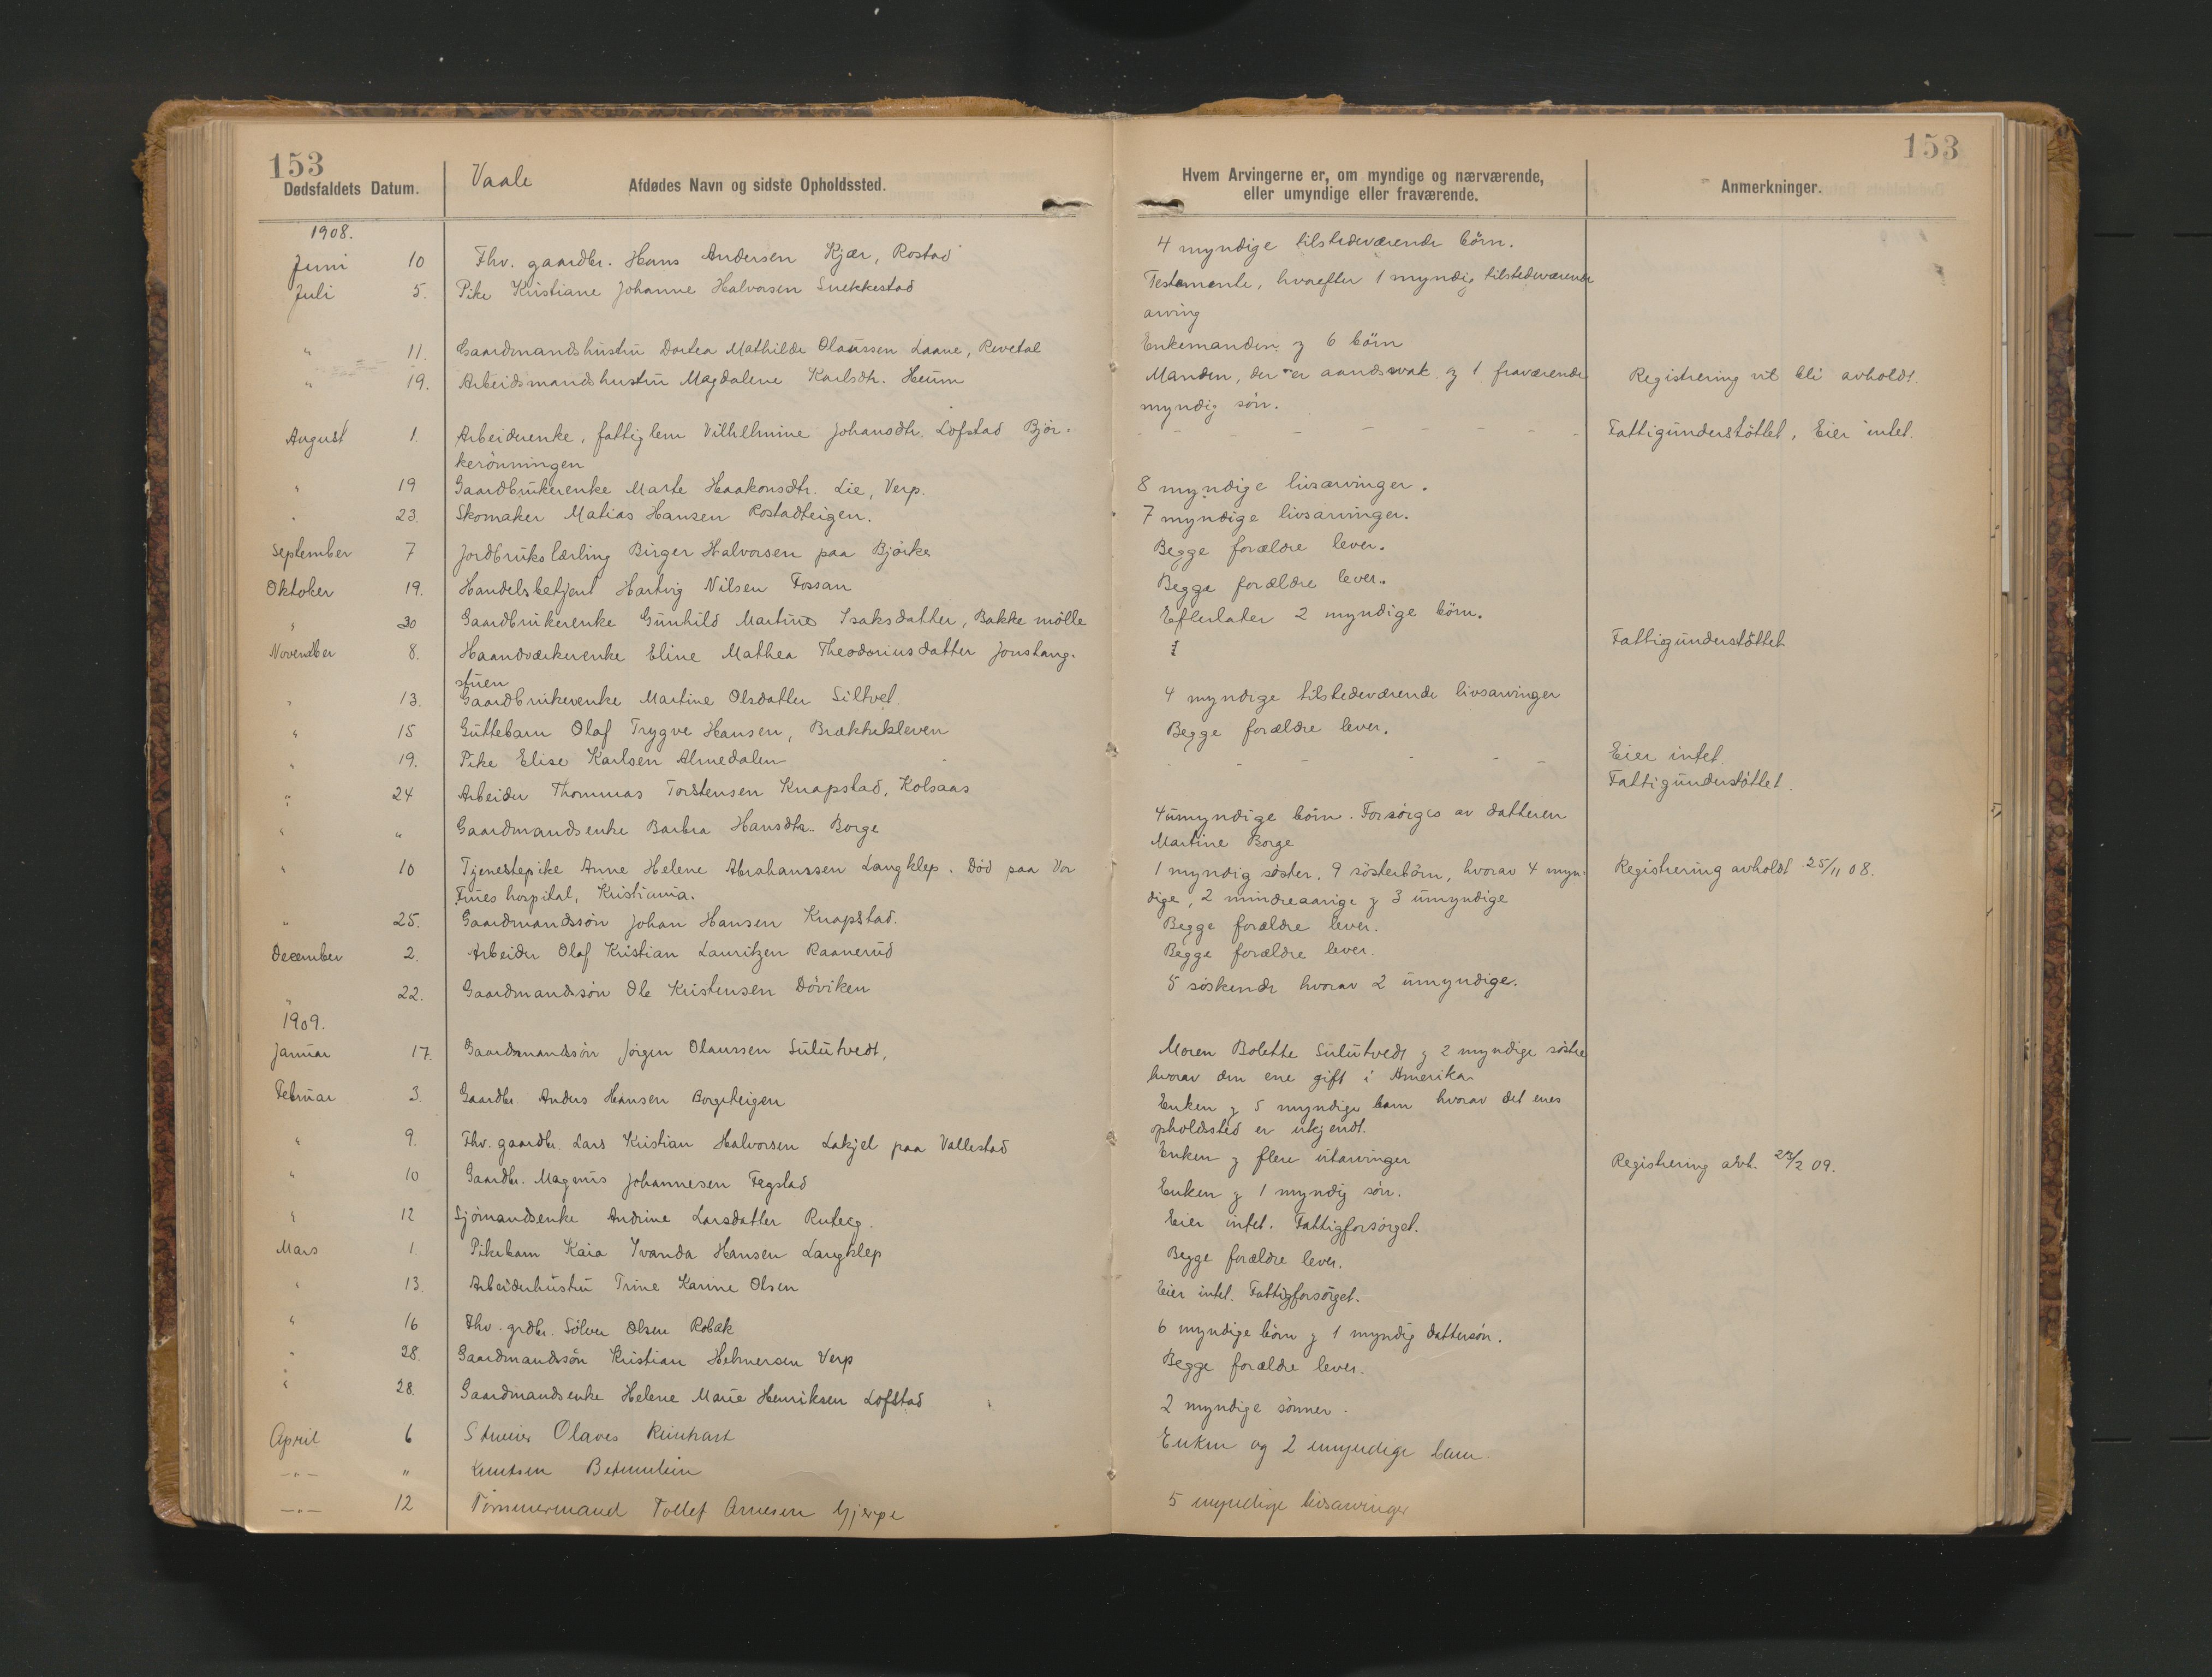 153
153
Vaale
Dødsfaldets Datum.
Afdødes Navn og sidste Opholdssted.
Hvem Arvingerne er, om myndige og nærværende,
eller umyndige eller fraværende.
Anmerkninger.
1908.
Juni 10 Fhv. gaardbr. Hans Andersen Kjær, Rostad 4 myndige tilstedeværende börn.
Juli 5. Pike Kristiane Johanne Halvorsen Snekkestad Testamente, hvorefter 1 myndig tilstedeværende
arving
" 11. Gaardmandshustru Dortea Mathilde Olaussen Laane, Revetal Enkemanden og 6 börn
" 19. Arbeidsmandshustru Magdalene Karlsdtr. Heum Manden, der er aandssvak og 1 fraværende Registrering vil bli avholdt.
myndig sön.
August 1. Arbeiderenke, fattiglem Vilhelmine Johansdtr. Lofstad Björ- - - - - - - - Fattigunderstöttet, Eier intet.
kerönningen
" 19 Gaardbrukerenke Marte Haakonsdtr. Lie, Verp. 8 myndige livsarvinger.
" 23. Skomaker Matias Hansen Rostadteigen. 7 myndige livsarvinger.
September 7 Jordbrukslærling Birger Halvorsen paa Bjørke Begge forældre lever.
Oktober 19. Handelsbetjent Hartvig Nilsen Fossan Begge forældre lever.
" 30 Gaardbrukerenke Gunhild Martine Isaksdatter, Bakke mölle Efterlater 2 myndige börn.
November 8. Haandværkerenke Eline Mathea Theodoriusdatter Jonstang- Fattigunderstöttet
stuen
" 13. Gaardbrukerenke Martine Olsdatter Siltvet. 4 myndige tilstedeværende livsarvinger
" 15 Guttebarn Olaf Trygve Hansen, Brækkekleven Begge forældre lever.
" 19. Pike Elise Karlsen Almedalen - - - - - Eier intet.
" 24 Arbeider Thommas Torstensen Knapstad, Kolsaas Fattigunderstöttet.
" " Gaardmandsenke Barbra Hansdtr. Borge 4 umyndige börn. Forsörges av datteren
Martine Borge
" 10 Tjenestepike Anne Helene Abrahamssen Langklep. Död paa Vor 1 myndig söster, 9 sösterbörn, hvorav 4 myn- Registrering avholdt 25/11 08.
Frues hospital, Kristiania. dige, 2 mindreaarige og 3 umyndige
" 25. Gaardmandssön Johan Hansen Knapstad. Begge forældre lever.
December 2. Arbeider Olaf Kristian Lauritzen Raanerud Begge forældre lever.
" 22. Gaardmandssön Ole Kristensen Döviken 5 söskende hvorav 2 umyndige.
1909.
Januar 17. Gaardmandssön Jörgen Olaussen Sulutvedt, Moren Bolette Sulutvedt og 2 myndige söstre
hvorav den ene gift i Amerika
Februar 3. Gaardbr. Anders Hansen Borgeteigen Enken og 5 myndige barn hvorav det enes
opholdssted er ukjendt.
" 9. Fhv. gaardbr. Lars Kristian Halvorsen Lakjel paa Vallestad Enken og flere utarvinger Registrering avh. 23/2 09.
" 10 Gaardbr. Magnus Johannesen Fegstad Enken og 1 myndig sön.
" 12 Sjömandsenke Andrine Larsdatter Ruteig. Eier intet. Fattigforsörget.
Mars 1. Pikebarn Kaia Yvanda Hansen Langklep Begge forældre lever.
" 13. Arbeiderhustru Trine Karine Olsen Eier intet. Fattigforsörget.
" 16 Fhv. grdbr. Sölver Olsen Robak 6 myndige börn og 1 myndig dattersön.
" 28. Gaardmandssön Kristian Helmersen Verp Begge forældre lever.
" 28. Gaardmandsenke Helene Marie Henriksen Lofstad 2 myndige sönner.
April 6 Olaves Reinhart Enken og 2 umyndige barn.
-"- " Knutsen
-"- 12 Tömmermand Tollef Arnesen Gjerpe 5 myndige livsarvinger